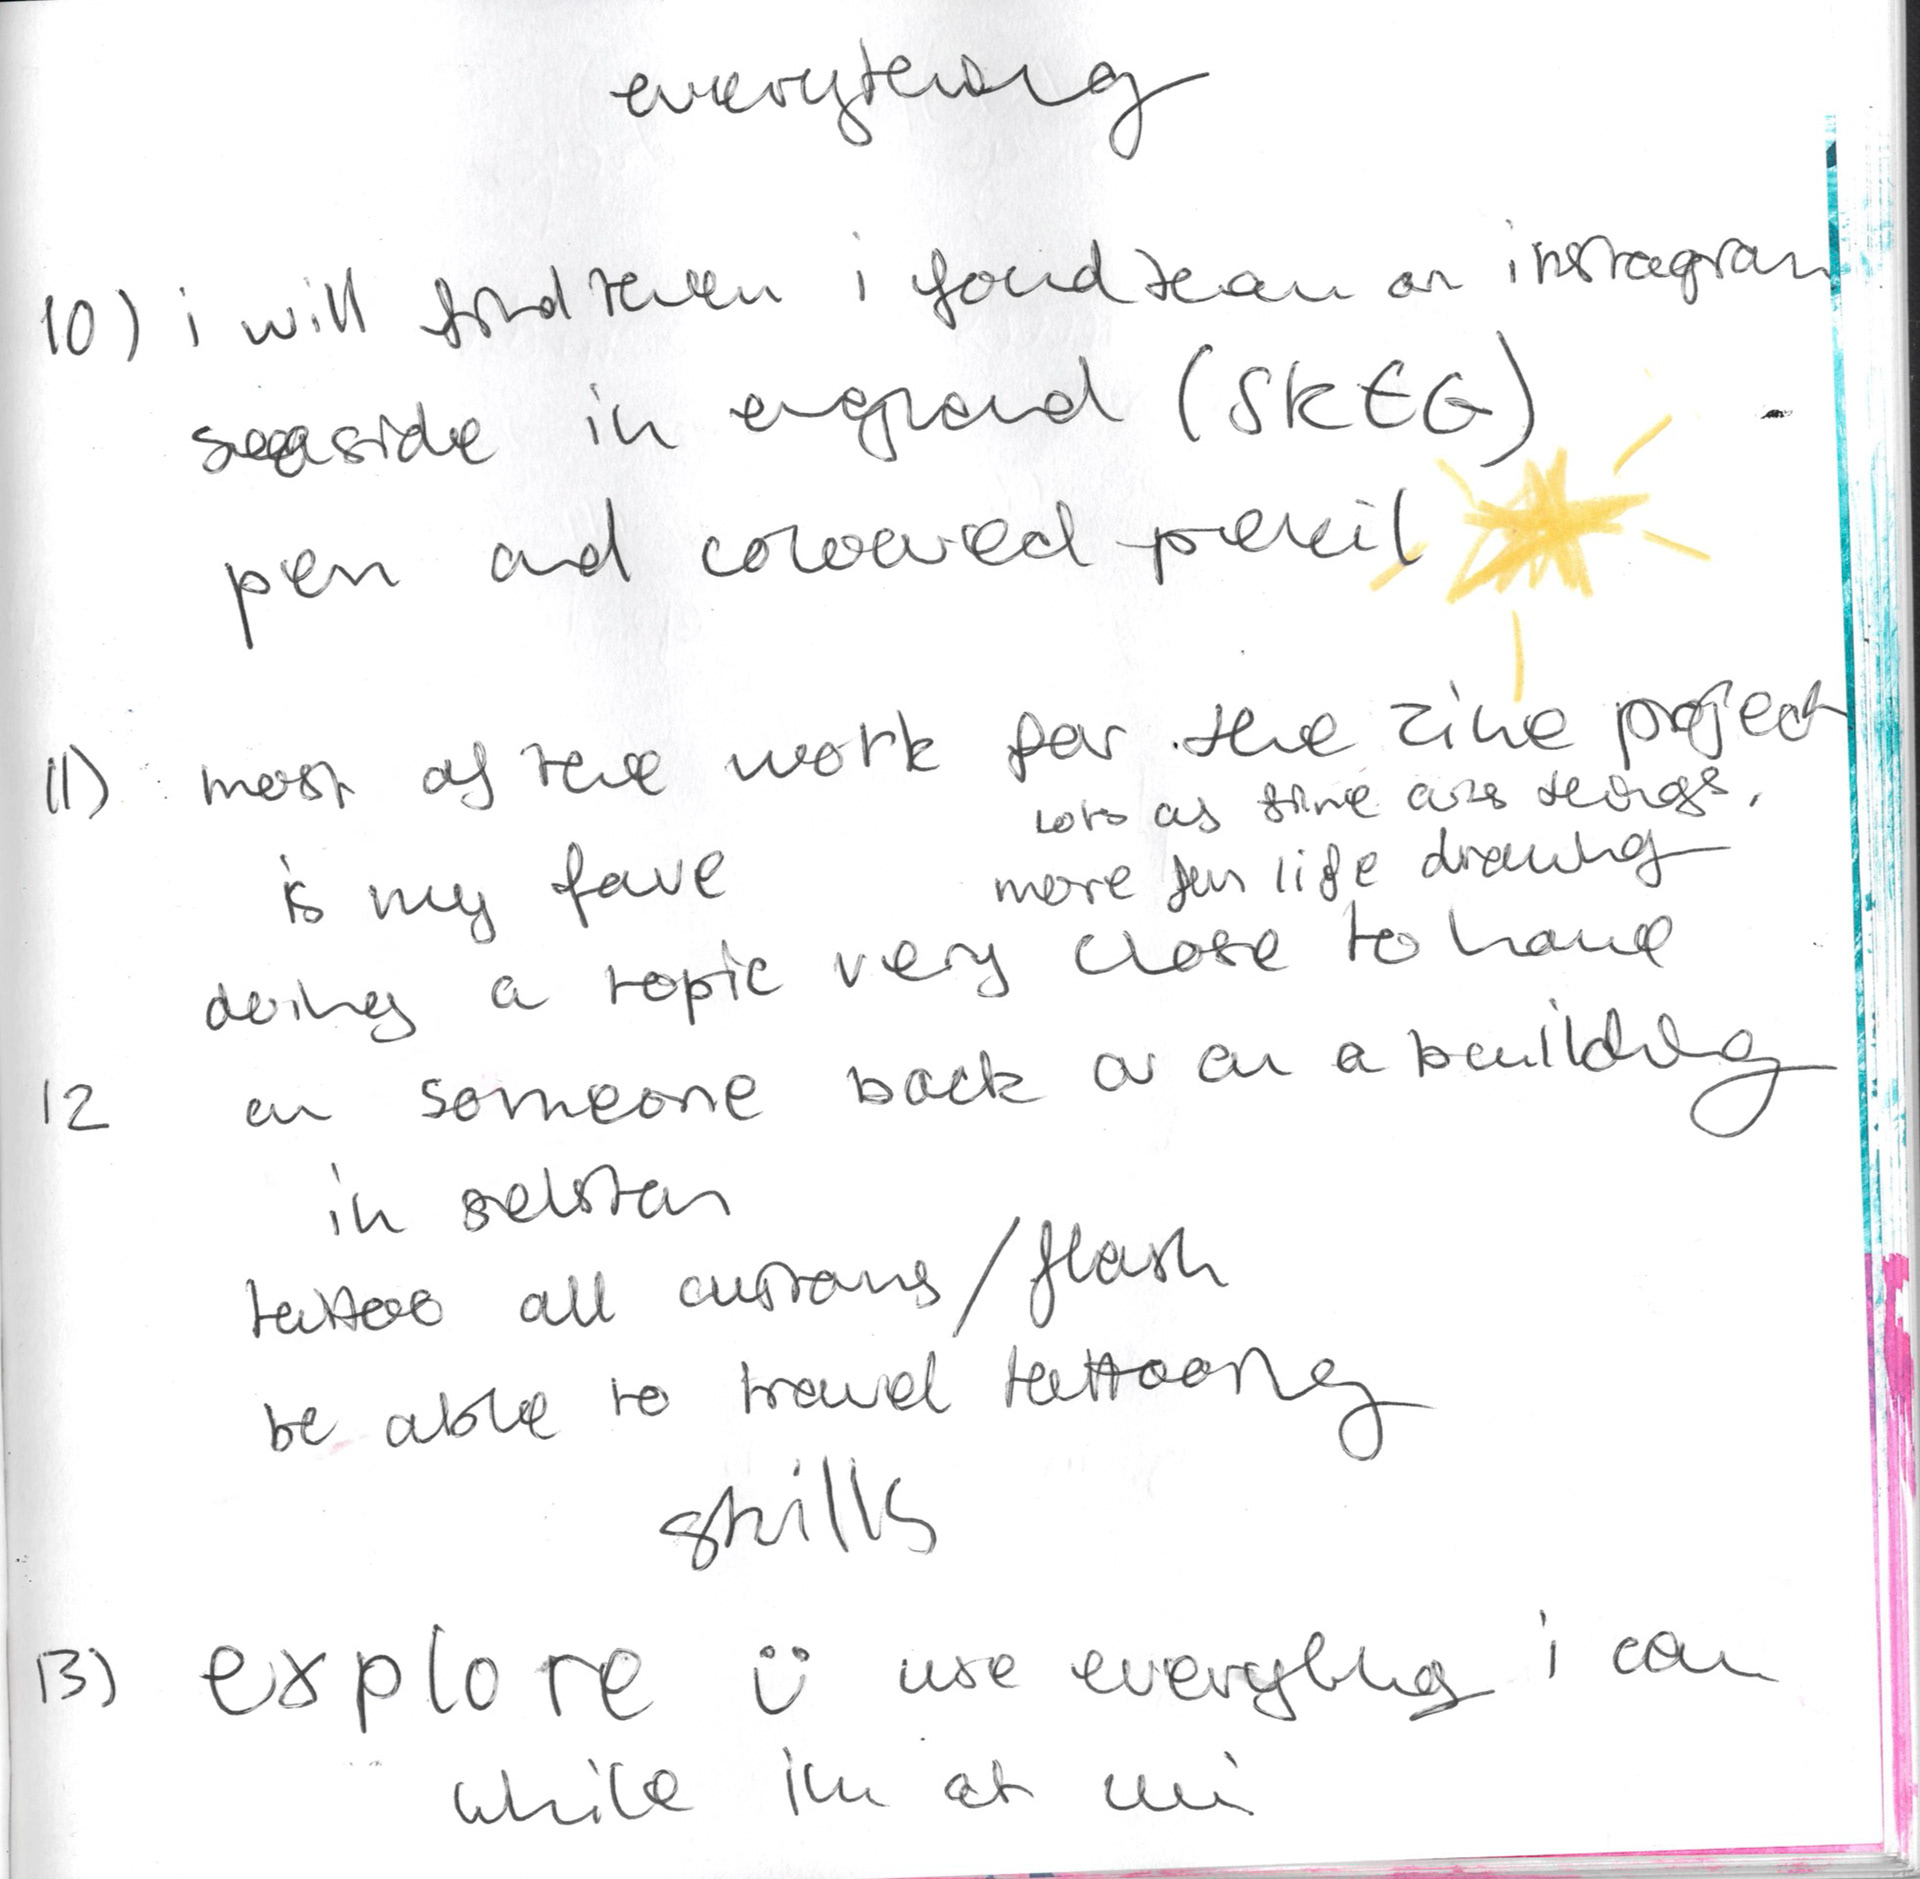 everything
10) i will find them i found them on instagram
seaside in england (SKEG)
pen and coloured pencil
11) most of the work for the zine project
lots as fine arts things,
is my fave
more fun life drawing
doing a topic very close to home
12 on someone back or on a building
in selston
tattoo all customs/flash
be able to travel tattooing
skills
13) explore ü use everything i can
while im at uni